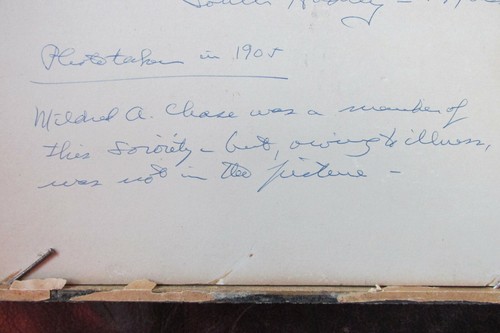 South Hadley -
Photo taken in 1905
Mildred A. Chase was a member of
this Society - but, owing to illness,
was not in the picture -